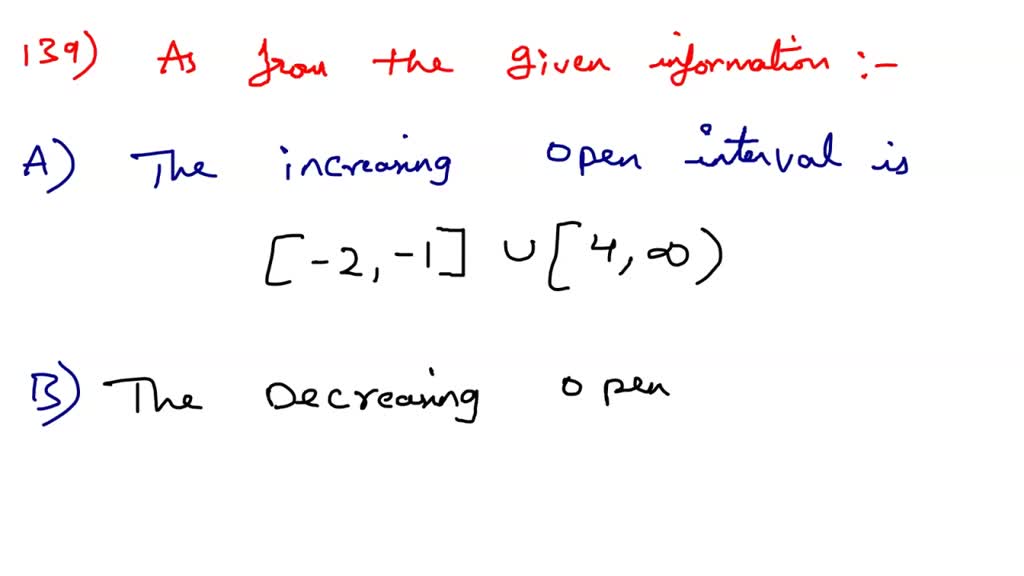 139) As from the given information :-
A) The increasing open interval is
[-2, -1] ∪ [4, ∞)
B) The Decreasing open